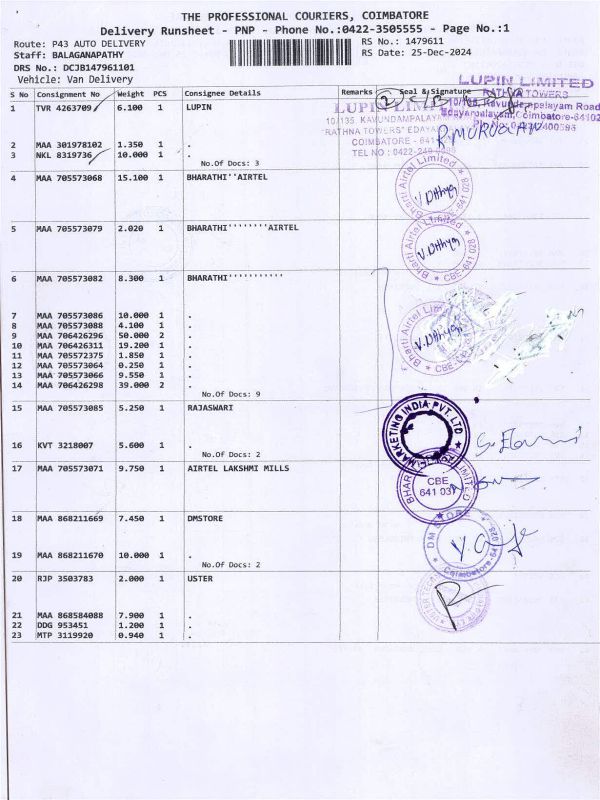 THE PROFESSIONAL COURIERS, COIMBATORE
Delivery Runsheet - PNP - Phone No.:0422-3505555 - Page No.:1
Route: P43 AUTO DELIVERY
RS No.: 1479611
Staff: BALAGANAPATHY
RS Date: 25-Dec-2024
DRS No.: DCJB147961101
Vehicle: Van Delivery
S No Consignment No Weight PCS Consignee Details Remarks Seal & Signature
LUPIN LIMITED
RATHNA TOWERS
1 TVR 4263709 6.100 1 LUPIN
LUPIN LIMITED
10/135, KAVUNDAMPALAYAM
"RATHNA TOWERS" EDAYA
COIMBATORE - 641
TEL NO : 0422-240
10/135, Kavundampalayam Road
Edayarpalayam, Coimbatore-641025
R. MURUGAN
2 MAA 301978102 1.350 1 .
3 NKL 8319736 10.000 1 .
No.Of Docs: 3
4 MAA 705573068 15.100 1 BHARATHI''AIRTEL
Bharti Airtel Limited
641 028
V. Dithya
5 MAA 705573079 2.020 1 BHARATHI''''''''AIRTEL
Bharti Airtel Limited
CBE-641 028
V. Dithya
6 MAA 705573082 8.300 1 BHARATHI'''''''''''
7 MAA 705573086 10.000 1 .
8 MAA 705573088 4.100 1 .
9 MAA 706426296 50.000 2 .
10 MAA 706426311 19.200 1 .
11 MAA 705572375 1.850 1 .
12 MAA 705573064 0.250 1 .
13 MAA 705573066 9.550 1 .
14 MAA 706426298 39.000 2 .
No.Of Docs: 9
Bharti Airtel Limited
CBE
V. Dithya
15 MAA 705573085 5.250 1 RAJASWARI
MARKETING INDIA PVT. LTD
16 KVT 3218007 5.600 1 .
No.Of Docs: 2
17 MAA 705573071 9.750 1 AIRTEL LAKSHMI MILLS
CBE
641 037
18 MAA 868211669 7.450 1 DMSTORE
DM STORE
Coimbatore-641 028
19 MAA 868211670 10.000 1 .
No.Of Docs: 2
20 RJP 3503783 2.000 1 USTER
21 MAA 868584088 7.900 1 .
22 DDG 953451 1.200 1 .
23 MTP 3119920 0.940 1 .